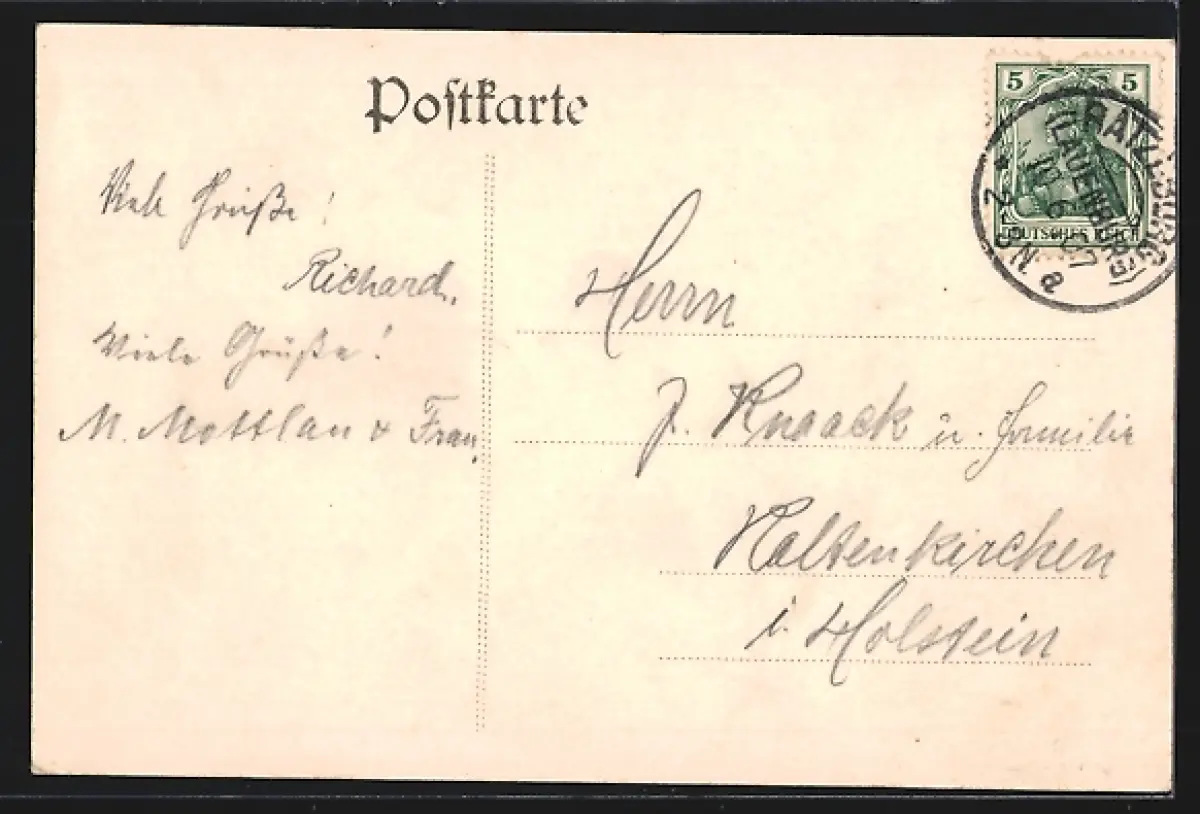 Postkarte
5 5
DEUTSCHES REICH
RATZEBURG
(LAUENBURG)
10 6 07
* 2-3 N a
Viele Grüße!
Richard.
Viele Grüße!
M. Mottlau & Frau.
Herrn
J. Knaack u. Familie
Kaltenkirchen
i. Holstein